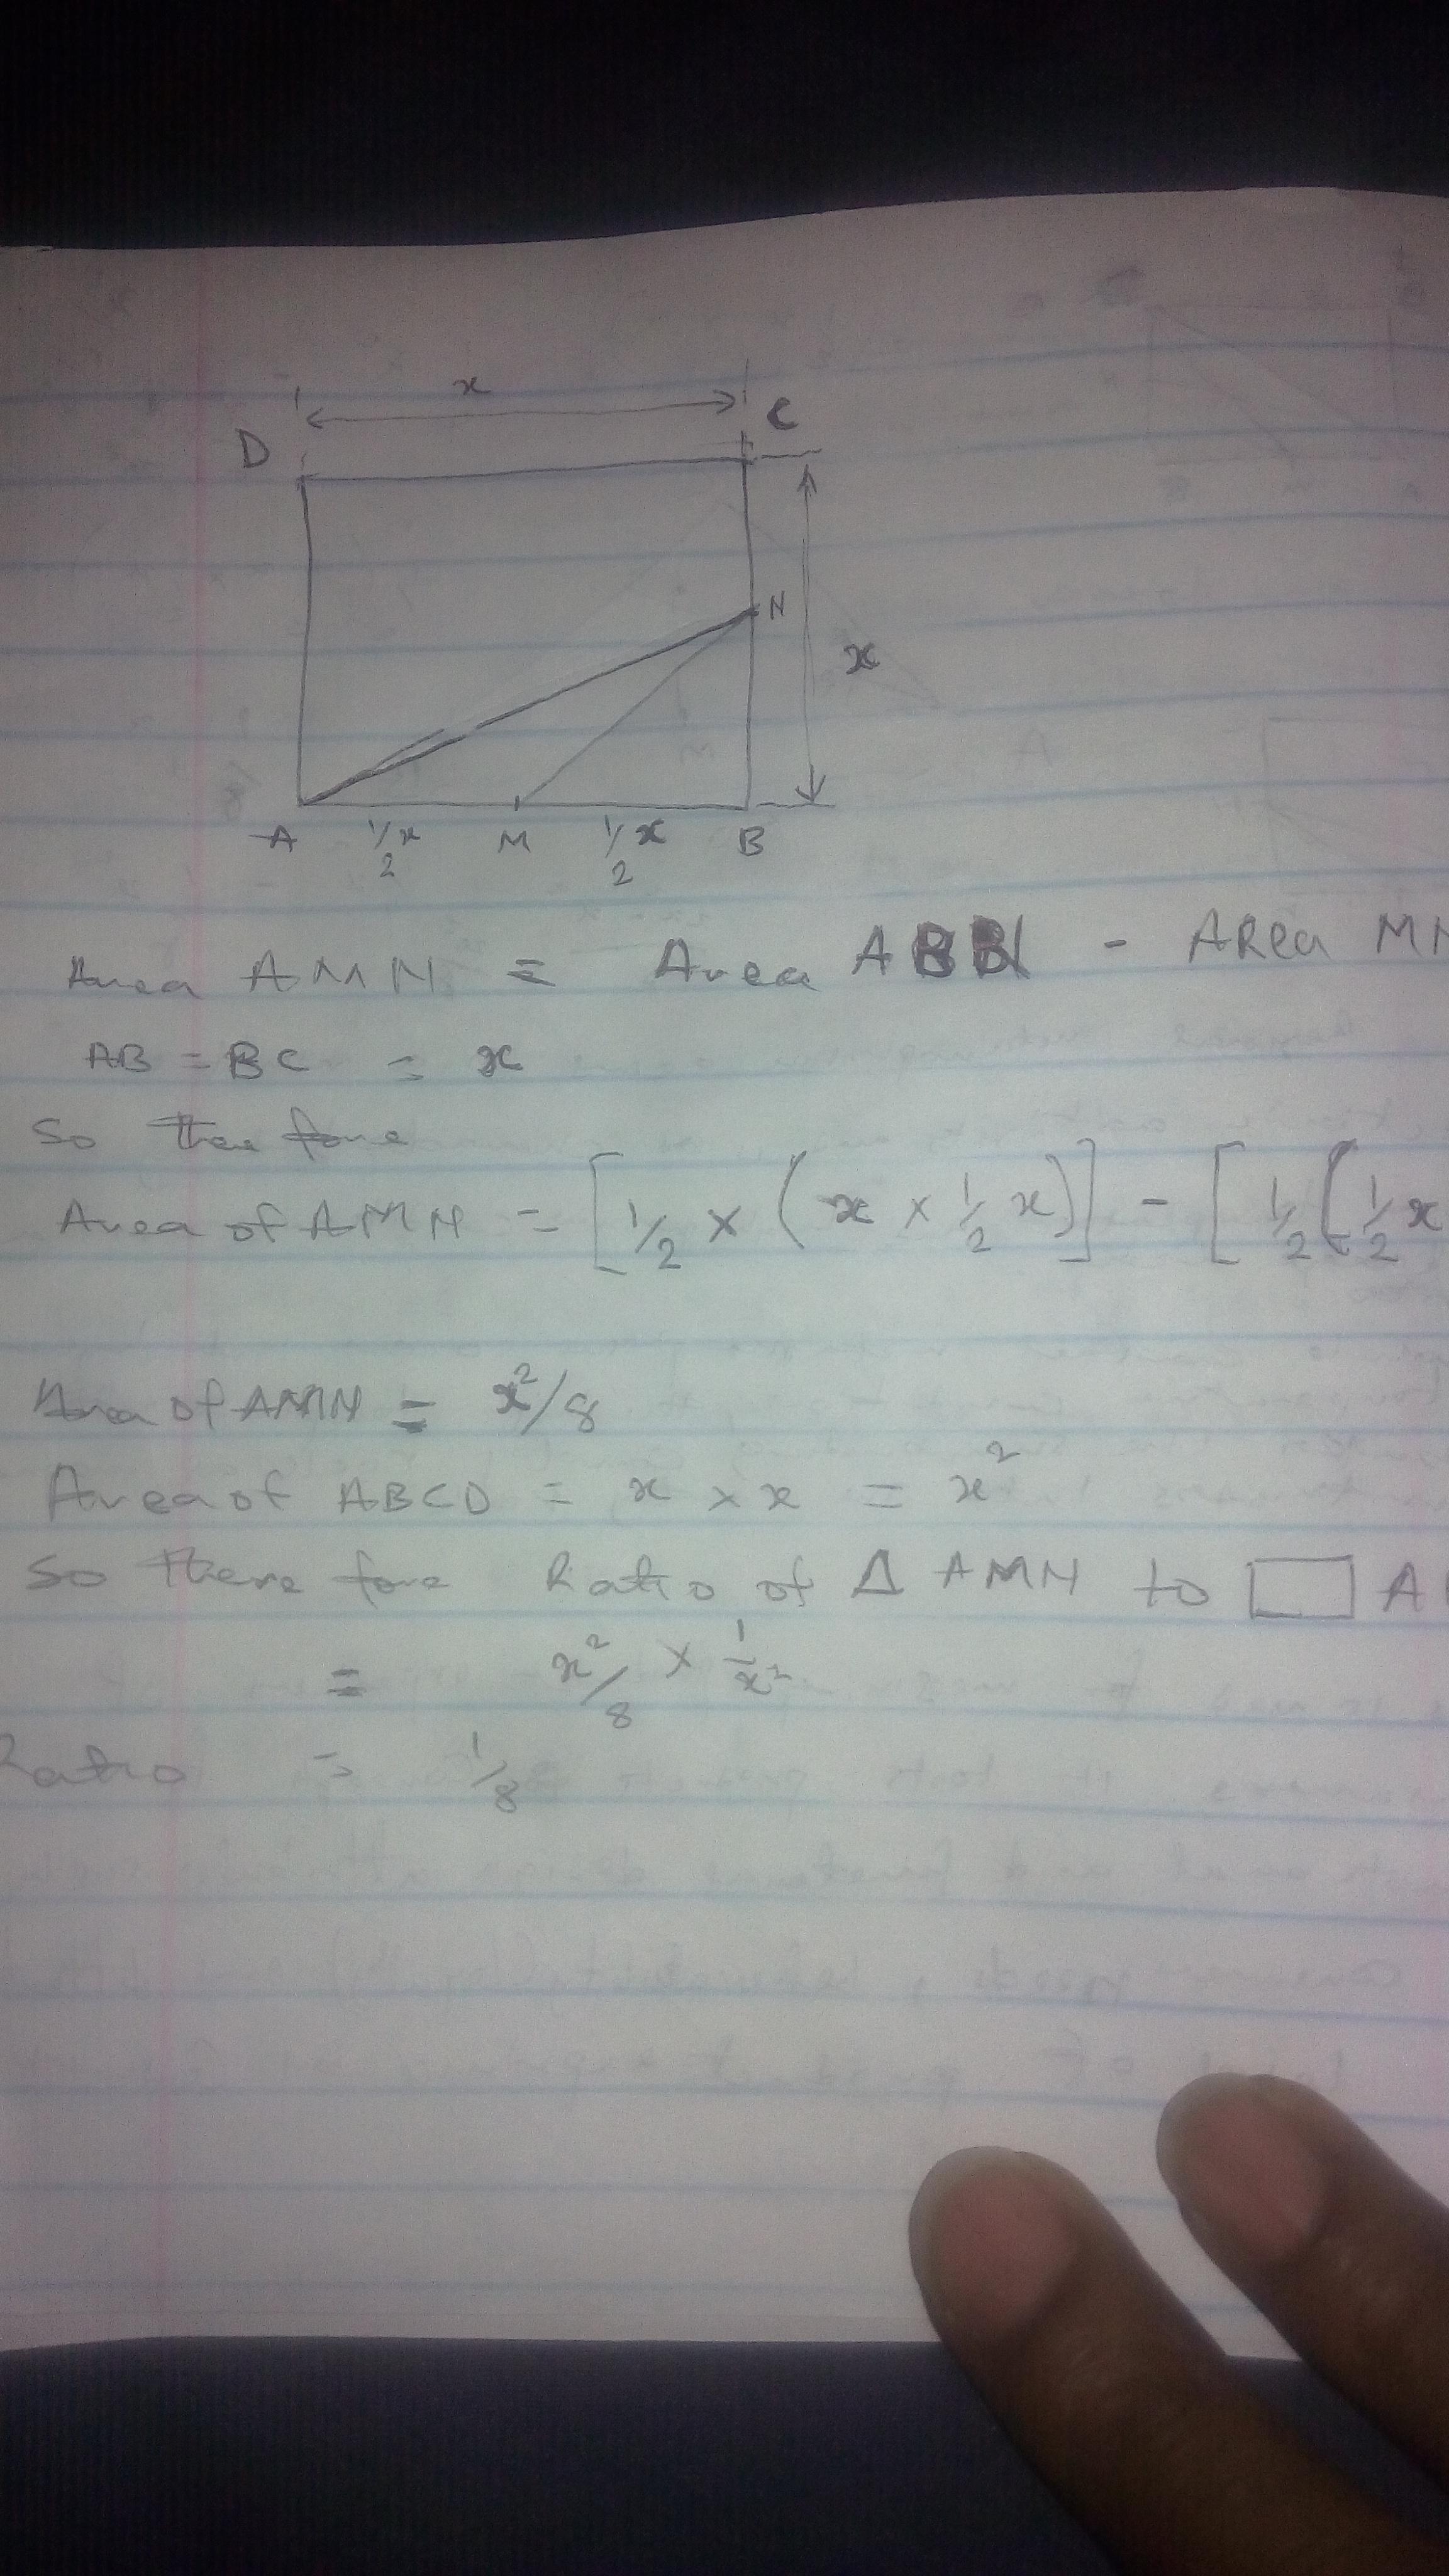 x
D C
N
x
A 1/2 x M 1/2 x B
Area AMN = Area ABN - ARea MN
AB = BC = x
So There fore
Area of AMN = [1/2 × (x × 1/2 x)] - [1/2 (1/2 x
Area of AMN = x²/8
Area of ABCD = x × x = x²
So There fore Ratio of Δ AMN to □ A
= x²/8 × 1/x²
Ratio = 1/8